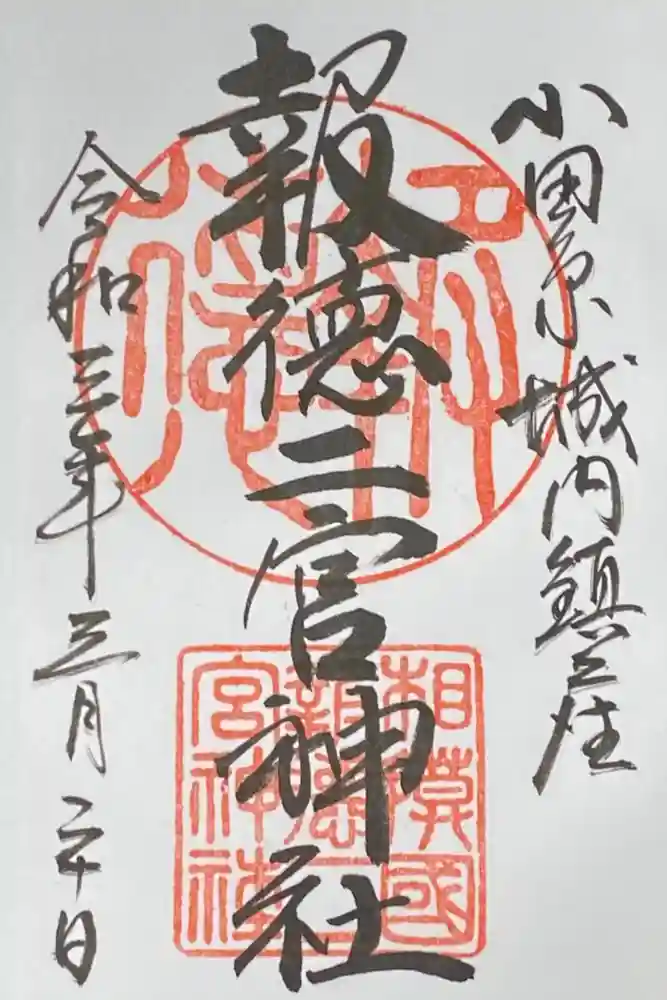 小田原城内鎮座
報徳二宮神社
令和三年三月二十日
相模國
報徳二
宮神社
報徳